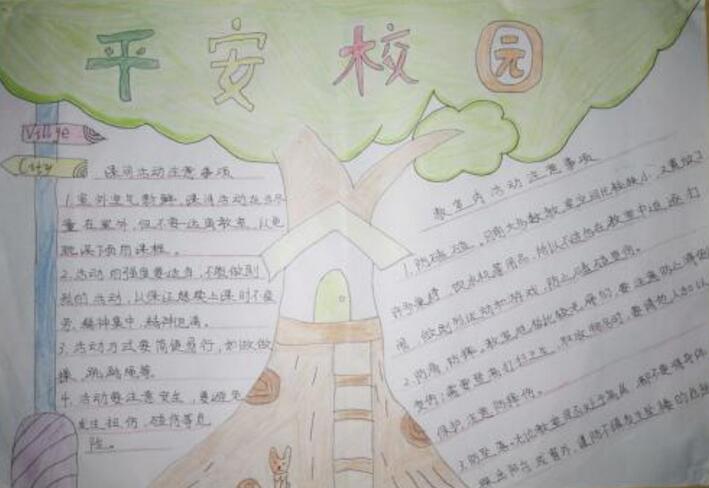 平安校园
Village
City
课间活动注意事项
1.室外空气新鲜,课间活动在尽
量在室外,但不要远离教室,以免
耽误下面的课程。
2.活动的强度要适当,不能做剧
烈的活动,以保证继续上课时不疲
劳、精神集中、精神饱满。
3.活动方式要简便易行,如做做
操,跳跳绳等。
4.活动要注意安全,要避免
发生扭伤,碰伤等危
险。
教室内活动注意事项
1.防磕碰。目前大多数教室空间比较狭小,又置放了
许多桌椅、饮水机等用品,所以不应在教室中追逐打
闹,做剧烈运动和游戏,防止磕碰受伤。
2.防滑、防摔。教室地板比较光滑的,要注意防止滑倒
受伤;需要登高打扫卫生、取放物品时,要请他人加以
保护,注意防摔伤。
3.防坠落。无论教室是否处于高层,都不要将身体